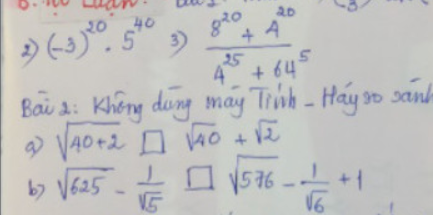 2) (-3)^20 . 5^40 3) (8^20 + 4^20) / (4^25 + 64^5)
Bài 2: Không dùng máy Tính - Hãy so sánh
a) √(40+2) □ √40 + √2
b) √625 - 1/√5 □ √576 - 1/√6 + 1